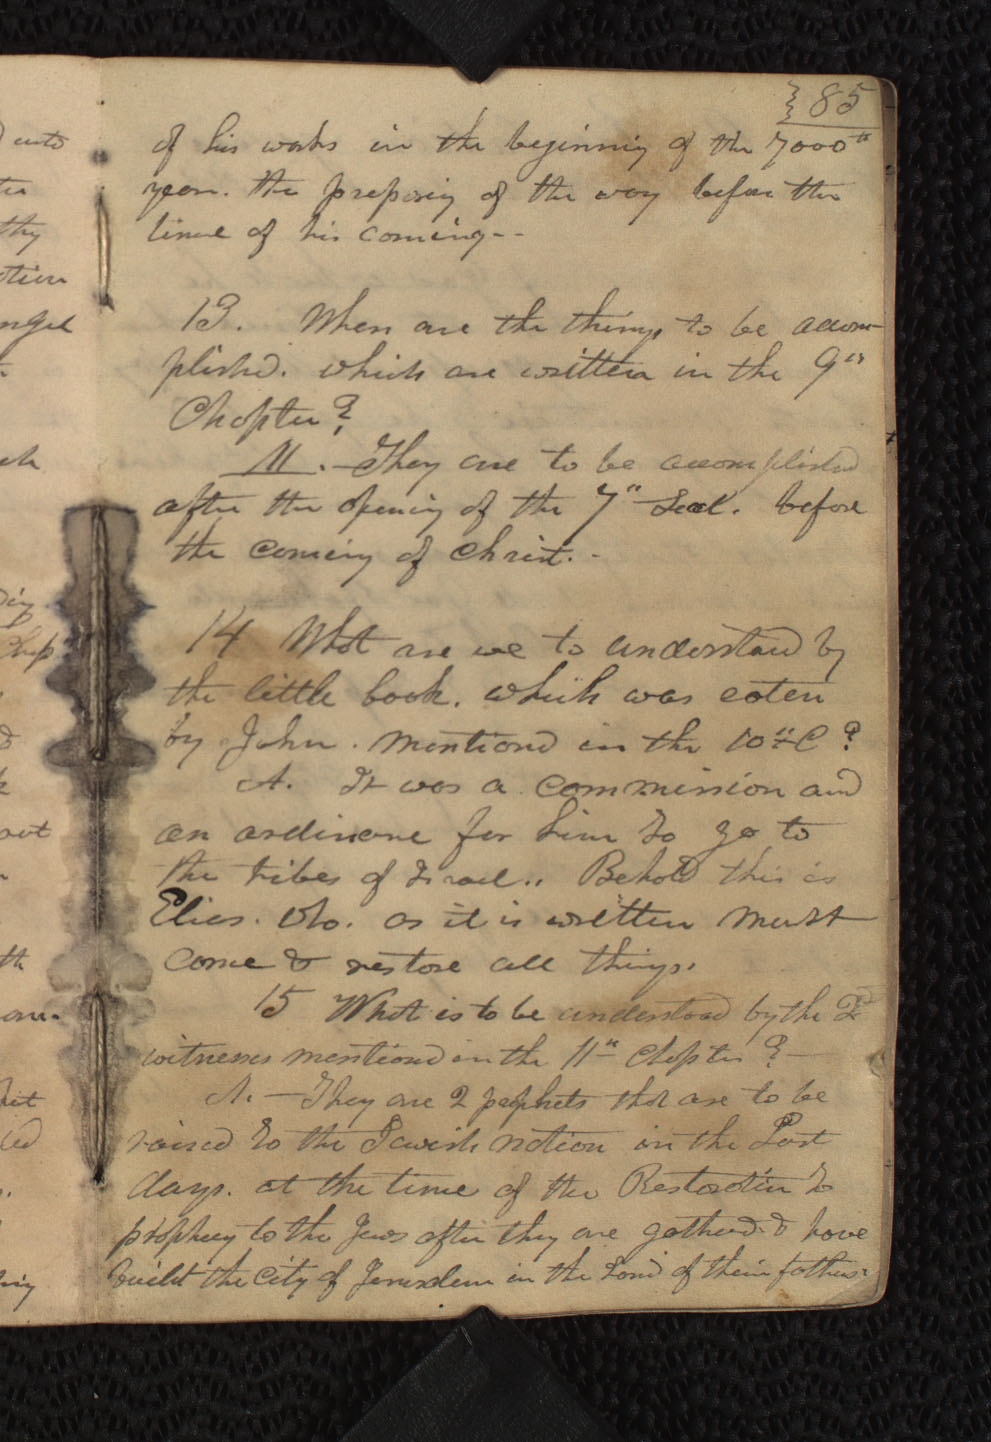 85
of his works in the beginning of the 7000th
year. the preparing of the way before the
time of his coming--
13. When are the things to be accom-
plishd. which are written in the 9th
Chapter?
A.- They are to be accomplished
after the opening of the 7th Seal. before
the coming of Christ.-
14 What are we to understand by
the little book. which was eaten
by John. mentiond in the 10th C?
A. It was a commission and
an ordinance for him to go to
the tribes of Israel.. Behold this is
Elias. Who. as it is written must
come & restore all things.
15 What is to be understood by the 2
witnesses mentiond in the 11th Chapter?-
A.- They are 2 prophets that are to be
raised to the Jewish nation in the Last
days. at the time of the Restoration to
prophecy to the Jews after they are gatherd & have
built the City of Jerusalem in the Land of their fathers.
uto
thy
otion
ngel
Chap